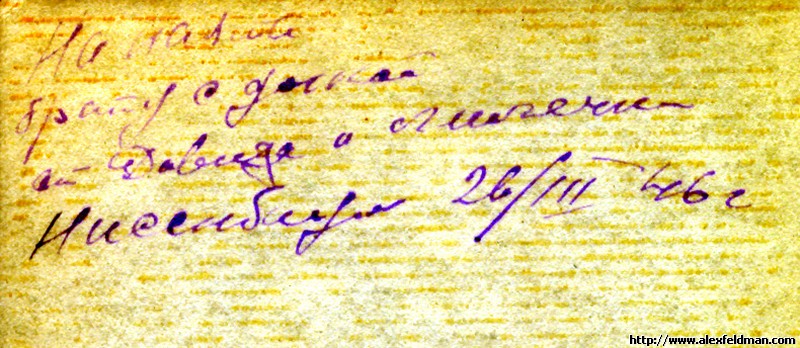 На память
брату с
от Давида и
Ниссенбаум 26/III 46 г
http://www.alexfeldman.com